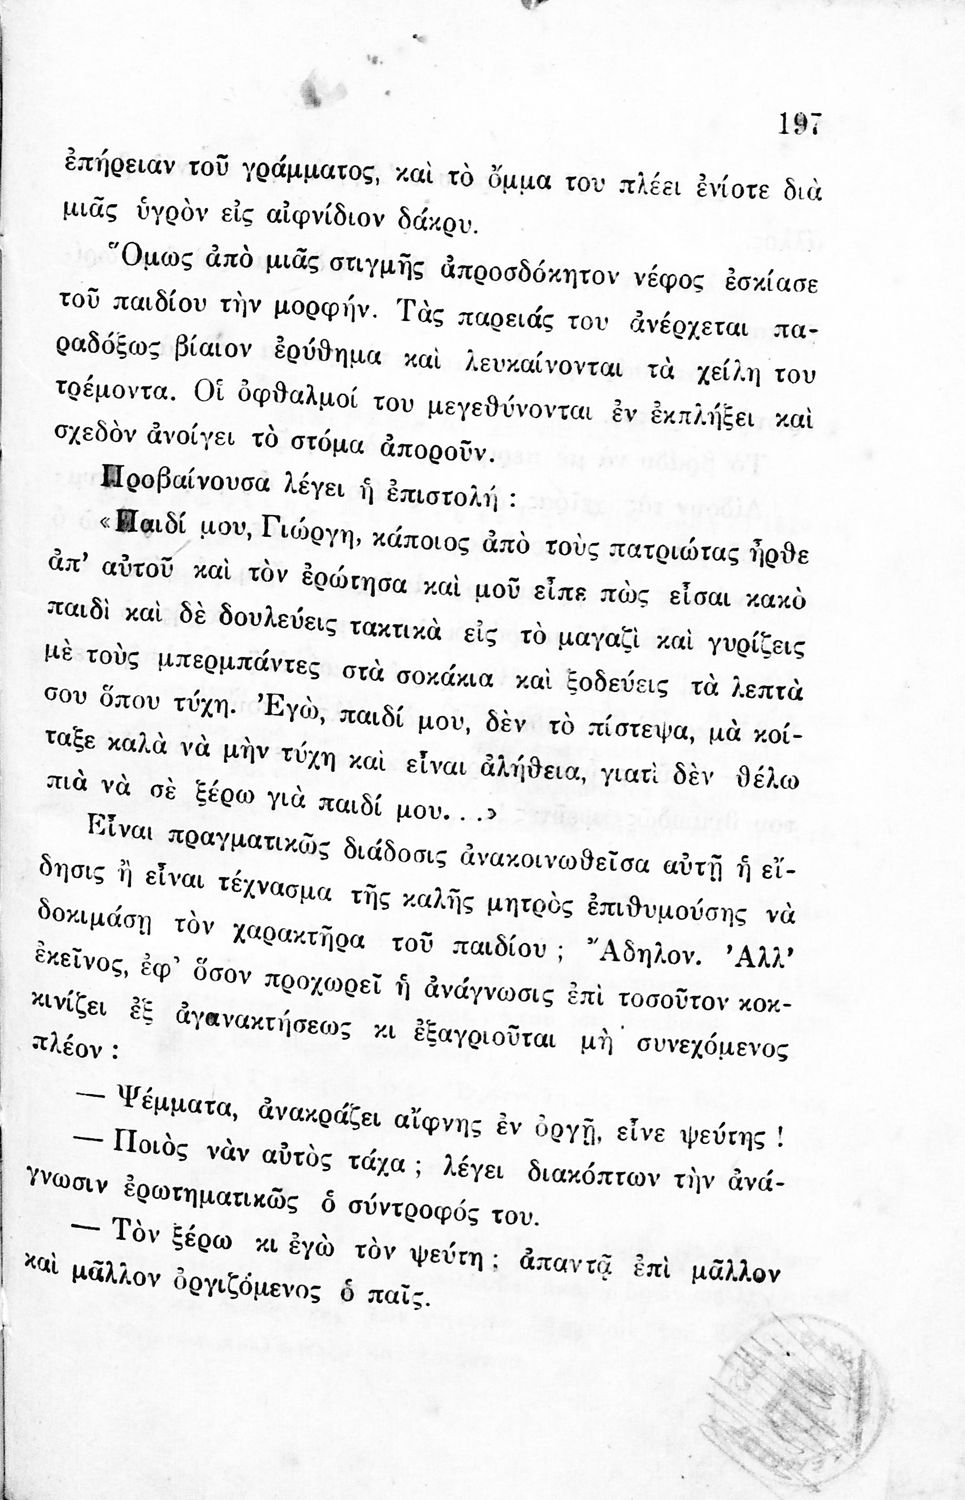 197
ἐπήρειαν τοῦ γράμματος, καὶ τὸ ὄμμα του πλέει ἐνίοτε διὰ
μιᾶς ὑγρὸν εἰς αἰφνίδιον δάκρυ.
Ὅμως ἀπὸ μιᾶς στιγμῆς ἀπροσδόκητον νέφος ἐσκίασε
τοῦ παιδίου τὴν μορφήν. Τὰς παρειάς του ἀνέρχεται πα-
ραδόξως βίαιον ἐρύθημα καὶ λευκαίνονται τὰ χείλη του
τρέμοντα. Οἱ ὀφθαλμοί του μεγεθύνονται ἐν ἐκπλήξει καὶ
σχεδὸν ἀνοίγει τὸ στόμα ἀποροῦν.
Προβαίνουσα λέγει ἡ ἐπιστολή :
«Παιδί μου, Γιώργη, κάποιος ἀπὸ τοὺς πατριώτας ἦρθε
ἀπ’ αὐτοῦ καὶ τὸν ἐρώτησα καὶ μοῦ εἶπε πὼς εἶσαι κακὸ
παιδὶ καὶ δὲ δουλεύεις τακτικὰ εἰς τὸ μαγαζὶ καὶ γυρίζεις
μὲ τοὺς μπερμπάντες στὰ σοκάκια καὶ ξοδεύεις τὰ λεπτὰ
σου ὅπου τύχη. Ἐγὼ, παιδί μου, δὲν τὸ πίστεψα, μὰ κοί-
ταξε καλὰ νὰ μὴν τύχη καὶ εἶναι ἀλήθεια, γιατὶ δὲν θέλω
πιὰ νὰ σὲ ξέρω γιὰ παιδί μου. . .»
Εἶναι πραγματικῶς διάδοσις ἀνακοινωθεῖσα αὐτῇ ἡ εἴ-
δησις ἢ εἶναι τέχνασμα τῆς καλῆς μητρὸς ἐπιθυμούσης νὰ
δοκιμάσῃ τὸν χαρακτῆρα τοῦ παιδίου ; Ἄδηλον. Ἀλλ’
ἐκεῖνος, ἐφ’ ὅσον προχωρεῖ ἡ ἀνάγνωσις ἐπὶ τοσοῦτον κοκ-
κινίζει ἐξ ἀγανακτήσεως κι ἐξαγριοῦται μὴ συνεχόμενος
πλέον :
— Ψέμματα, ἀνακράζει αἴφνης ἐν ὀργῇ, εἶνε ψεύτης !
— Ποιὸς νὰν αὐτὸς τάχα ; λέγει διακόπτων τὴν ἀνά-
γνωσιν ἐρωτηματικῶς ὁ σύντροφός του.
— Τὸν ξέρω κι ἐγὼ τὸν ψεύτη ; ἀπαντᾷ ἐπὶ μᾶλλον
καὶ μᾶλλον ὀργιζόμενος ὁ παῖς.